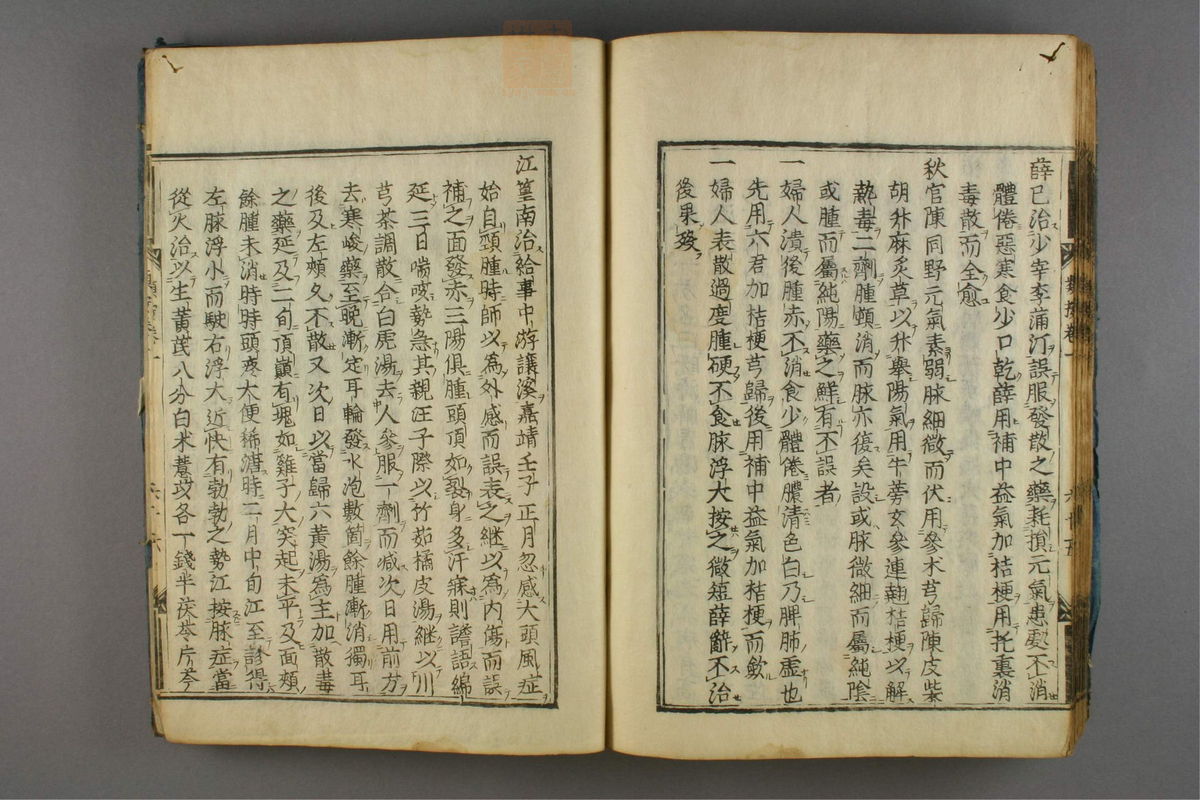 薛已治少宰李蒲汀誤服發散之藥耗損元氣患處不消
體倦惡寒食少口乾薛用補中益氣加桔梗用托裏消
毒散而全愈
秋官陳同野元氣素弱脉細微而伏用參朮芎歸陳皮柴
胡升麻炙草以升舉陽氣用牛蒡玄參連翹桔梗以解
熱毒二劑腫頓消而脉亦復矣設或脉微細而屬純陰
或腫而屬純陽藥之鮮有不誤者
一婦人潰後腫赤不消食少體倦膿清色白乃脾肺虛也
先用六君加桔梗芎歸後用補中益氣加桔梗而歛
一婦人表散過度腫硬不食脉浮大按之微短薛辭不治
後果歿
江篁南治給事中游讓溪嘉靖壬子正月忽感大頭風症
始自頸腫時師以為外感而誤表之継以為内傷而誤
補之面發赤三陽俱腫頭頂如裂身多汗寐則譫語綿
延三日喘咳勢急其親汪子際以竹茹橘皮湯継以川
芎茶調散合白虎湯去人參服一劑而减次日用前方
去寒峻藥至晚漸定耳輪發水泡數箇餘腫漸消獨耳
後及左頰久不散又次日以當歸六黃湯為主加散毒
之藥延及二旬頂巔有塊如雞子大突起未平及面頰
餘腫未消時時頭疼大便稀溏時二月中旬江至診得
左脉浮小而駛右浮大近快有勃勃之勢江按脉症當
從火治以生黃茋八分白朮薏苡各一錢半茯苓片芩